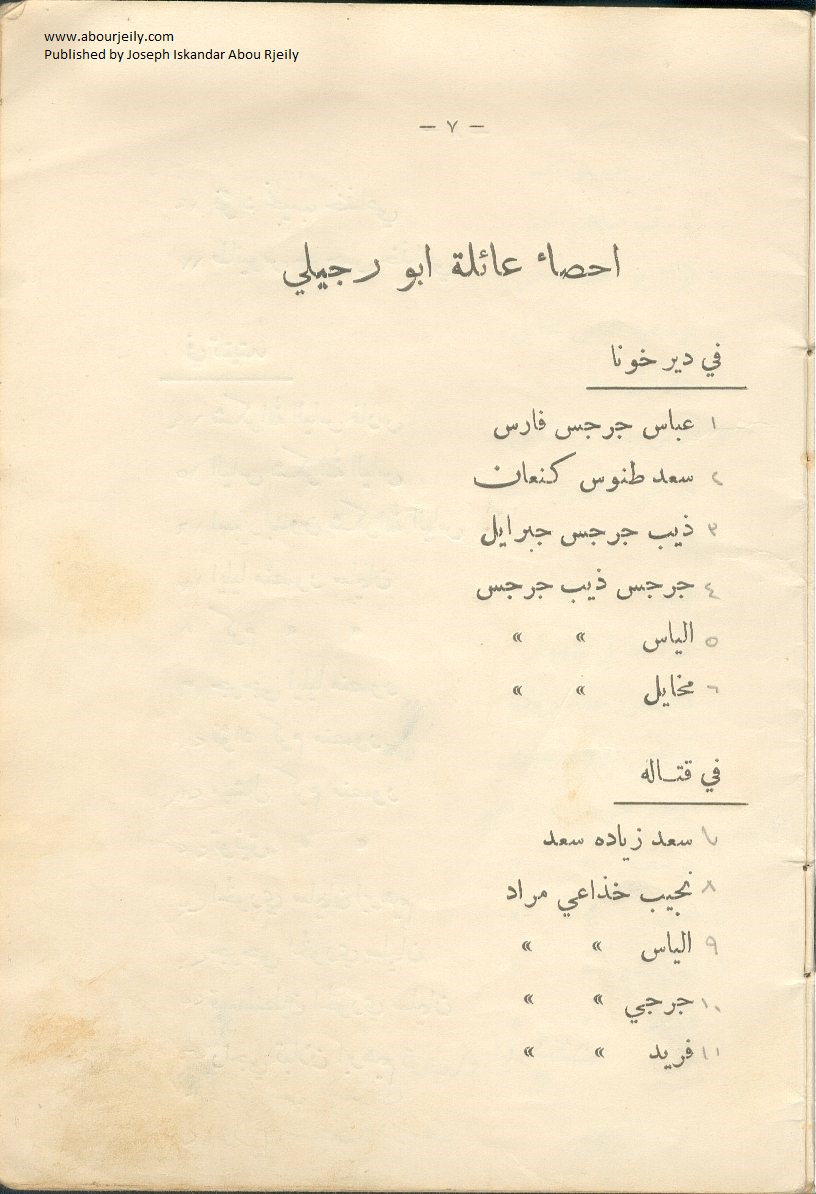 www.abourjeily.com
Published by Joseph Iskandar Abou Rjeily
— ٧ —
احصاء عائلة ابو رجيلي
في دير خونا
١ عباس جرجس فارس
٢ سعد طنوس كنعان
٣ ذيب جرجس جبرايل
٤ جرجس ذيب جرجس
٥ الياس » »
٦ مخايل » »
في قتاله
٧ سعد زياده سعد
٨ نجيب خذاعي مراد
٩ الياس » »
١٠ جرجي » »
١١ فريد » »